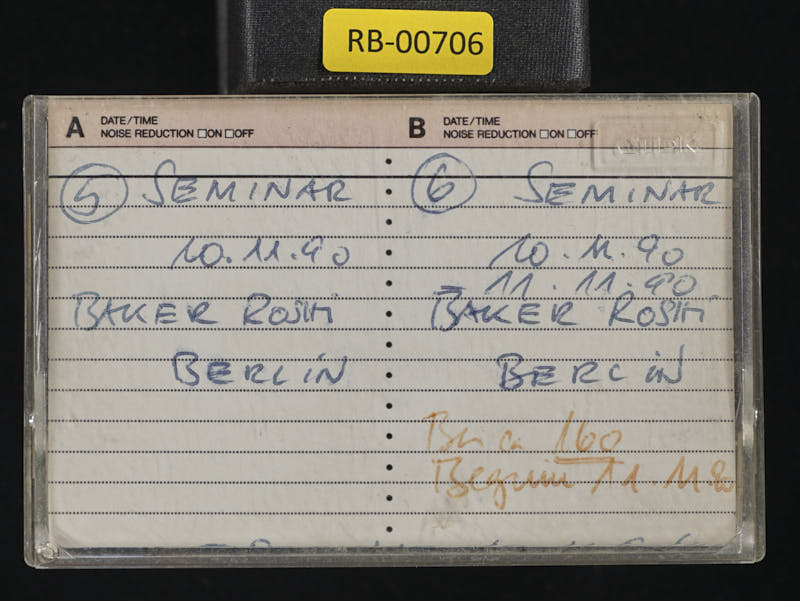 RB-00706
A DATE/TIME
NOISE REDUCTION ☐ON ☐OFF
5 SEMINAR
10.11.90
BAKER ROSHI
BERLIN
B DATE/TIME
NOISE REDUCTION ☐ON ☐OFF
6 SEMINAR
10.11.90
- 11.11.90
BAKER ROSHI
BERLIN
Bei ca 160
Beginn 11.11.90